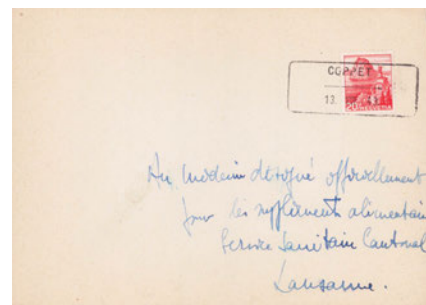 COPPET
20 HELVETIA
Au médecin désigné officiellement
pour les suppléments alimentair
Service Sanitaire Cantonal
Lausanne.